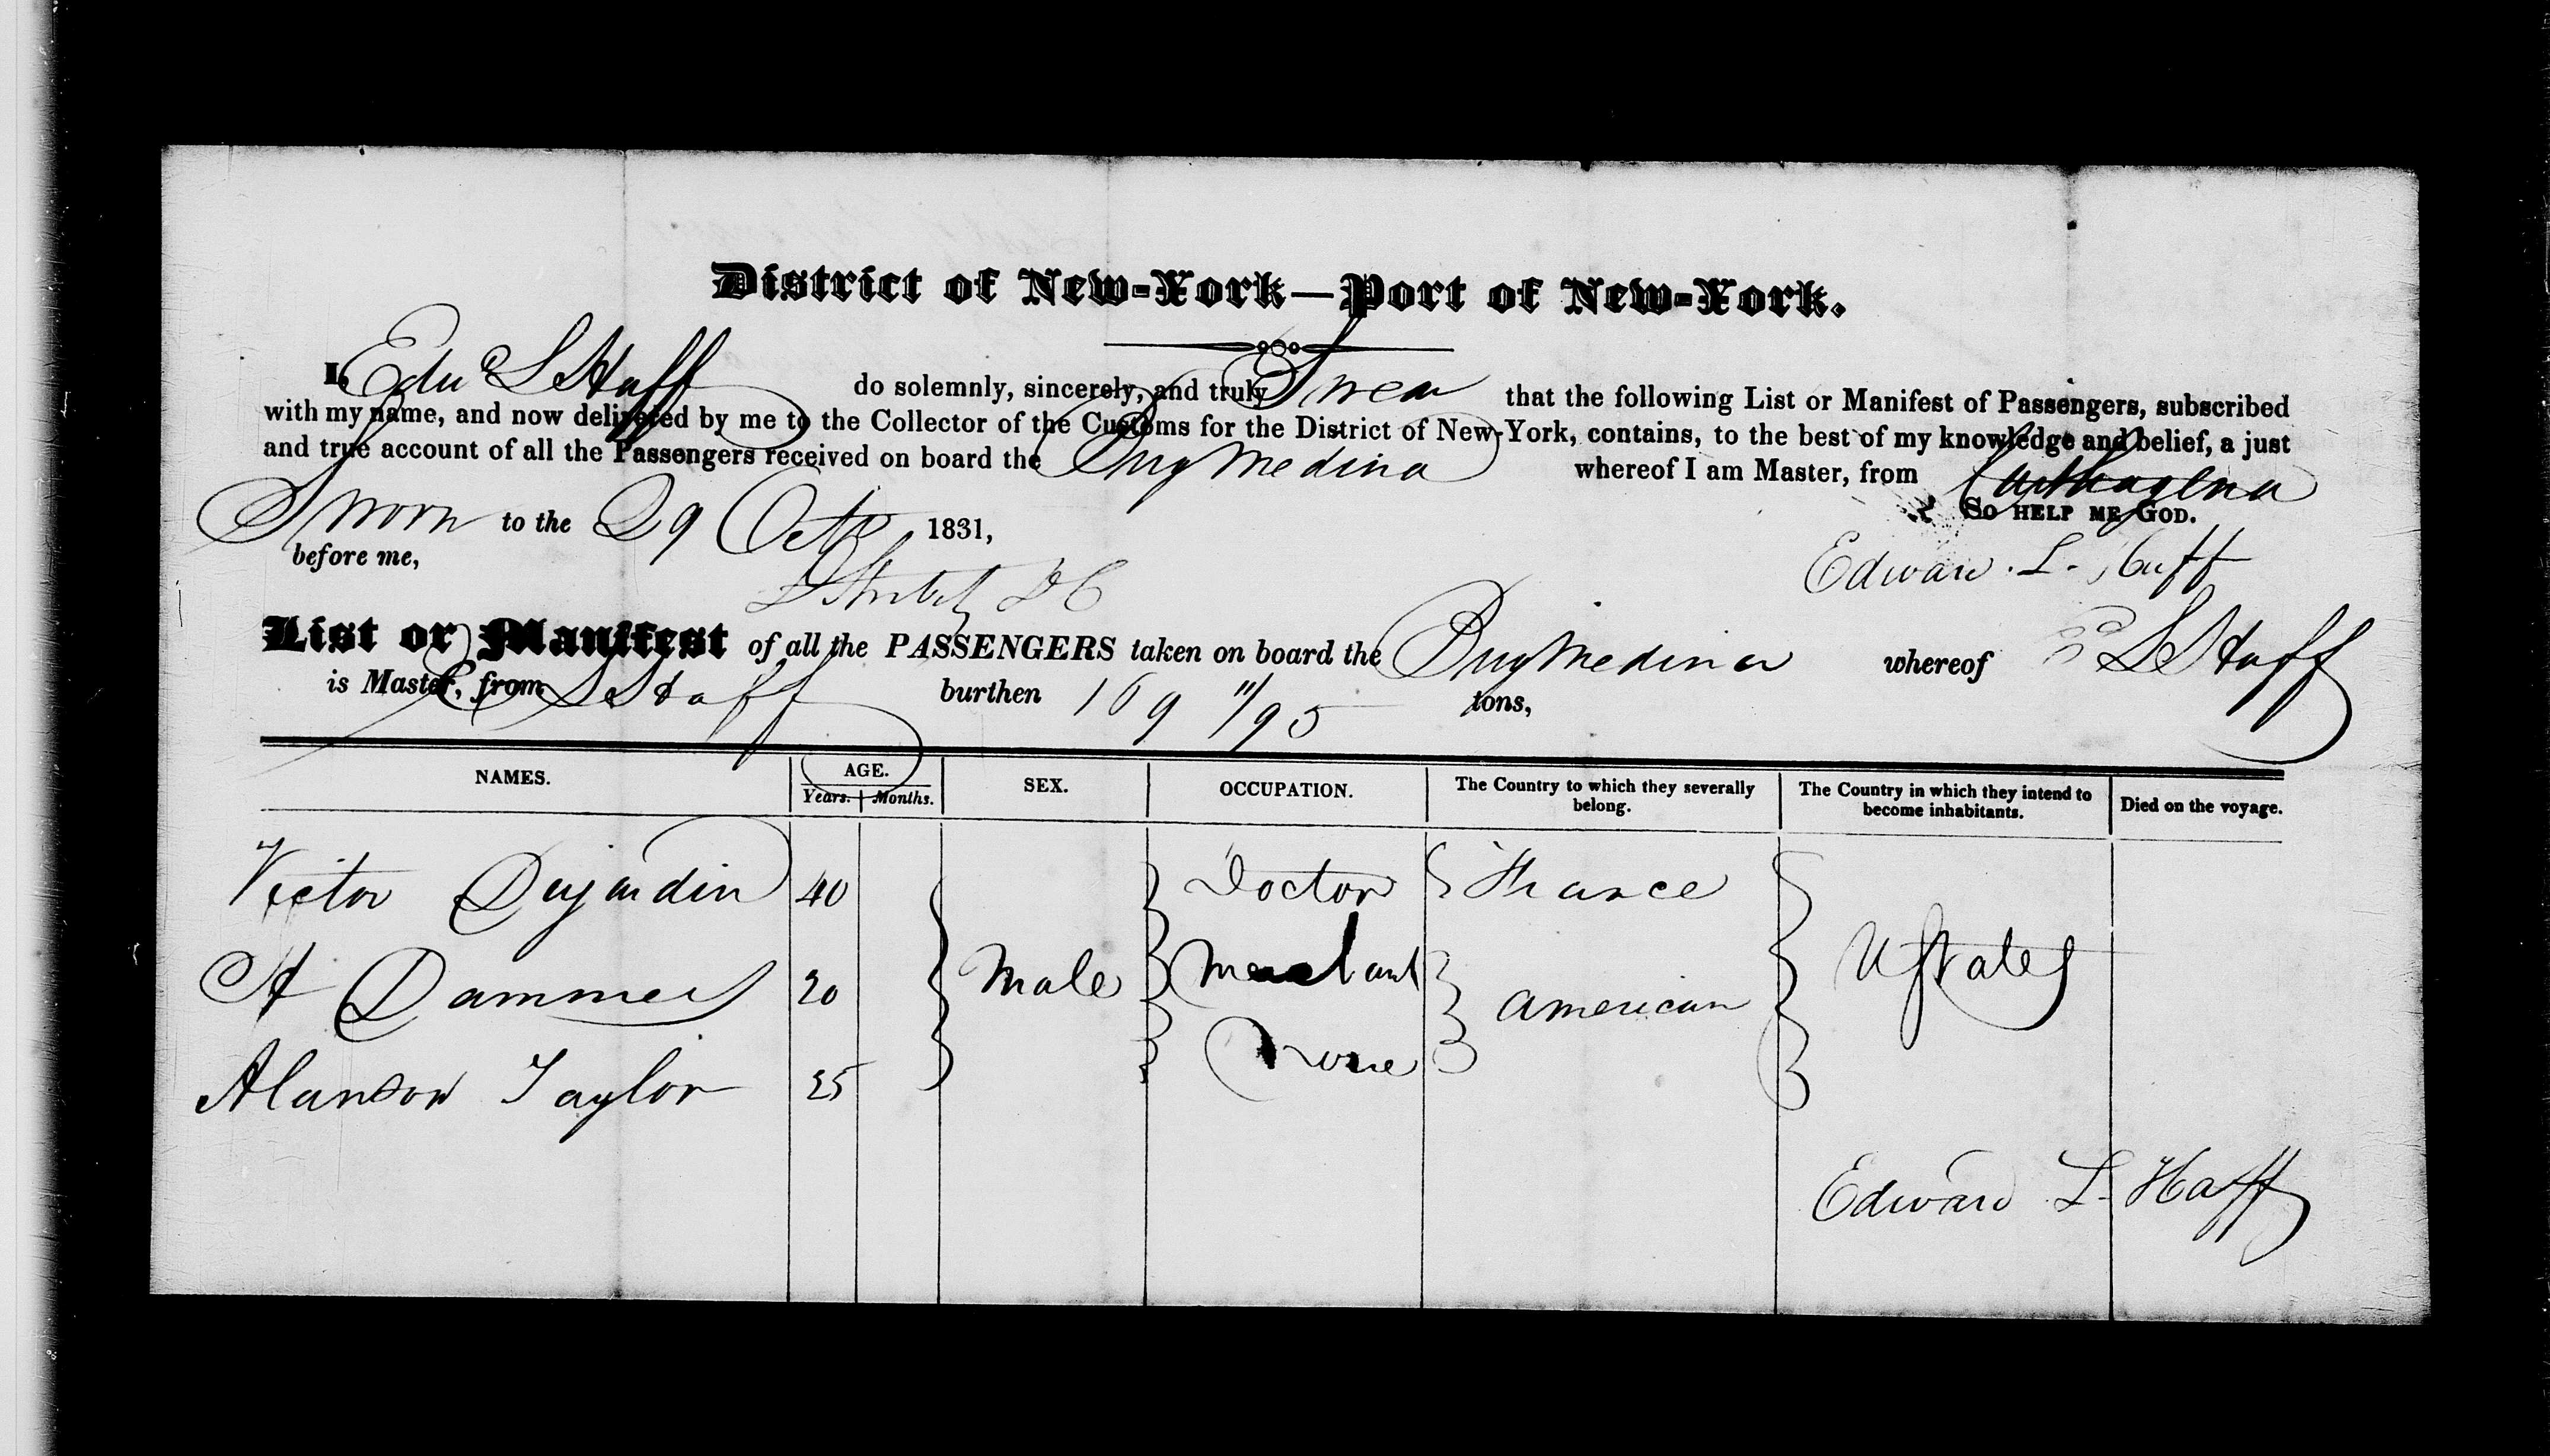 District of New-York—Port of New-York.
I, Edwd L Haff do solemnly, sincerely, and truly Swear that the following List or Manifest of Passengers, subscribed
with my name, and now delivered by me to the Collector of the Customs for the District of New-York, contains, to the best of my knowledge and belief, a just
and true account of all the Passengers received on board the Brig Medina whereof I am Master, from Carthagena
Sworn to the 29 Octo 1831, So help me God.
before me, Edward L. Haff
List or Manifest of all the PASSENGERS taken on board the Brig Medina whereof E L Haff
is Master, from E L Haff burthen 169 11/95 tons,
NAMES. AGE. Years. Months. SEX. OCCUPATION. The Country to which they severally belong. The Country in which they intend to become inhabitants. Died on the voyage.
Victor Dujardin 40 Doctor France
A Dammers 20 Male Merchant American U States
Alanson Taylor 25 None
Edward L. Haff